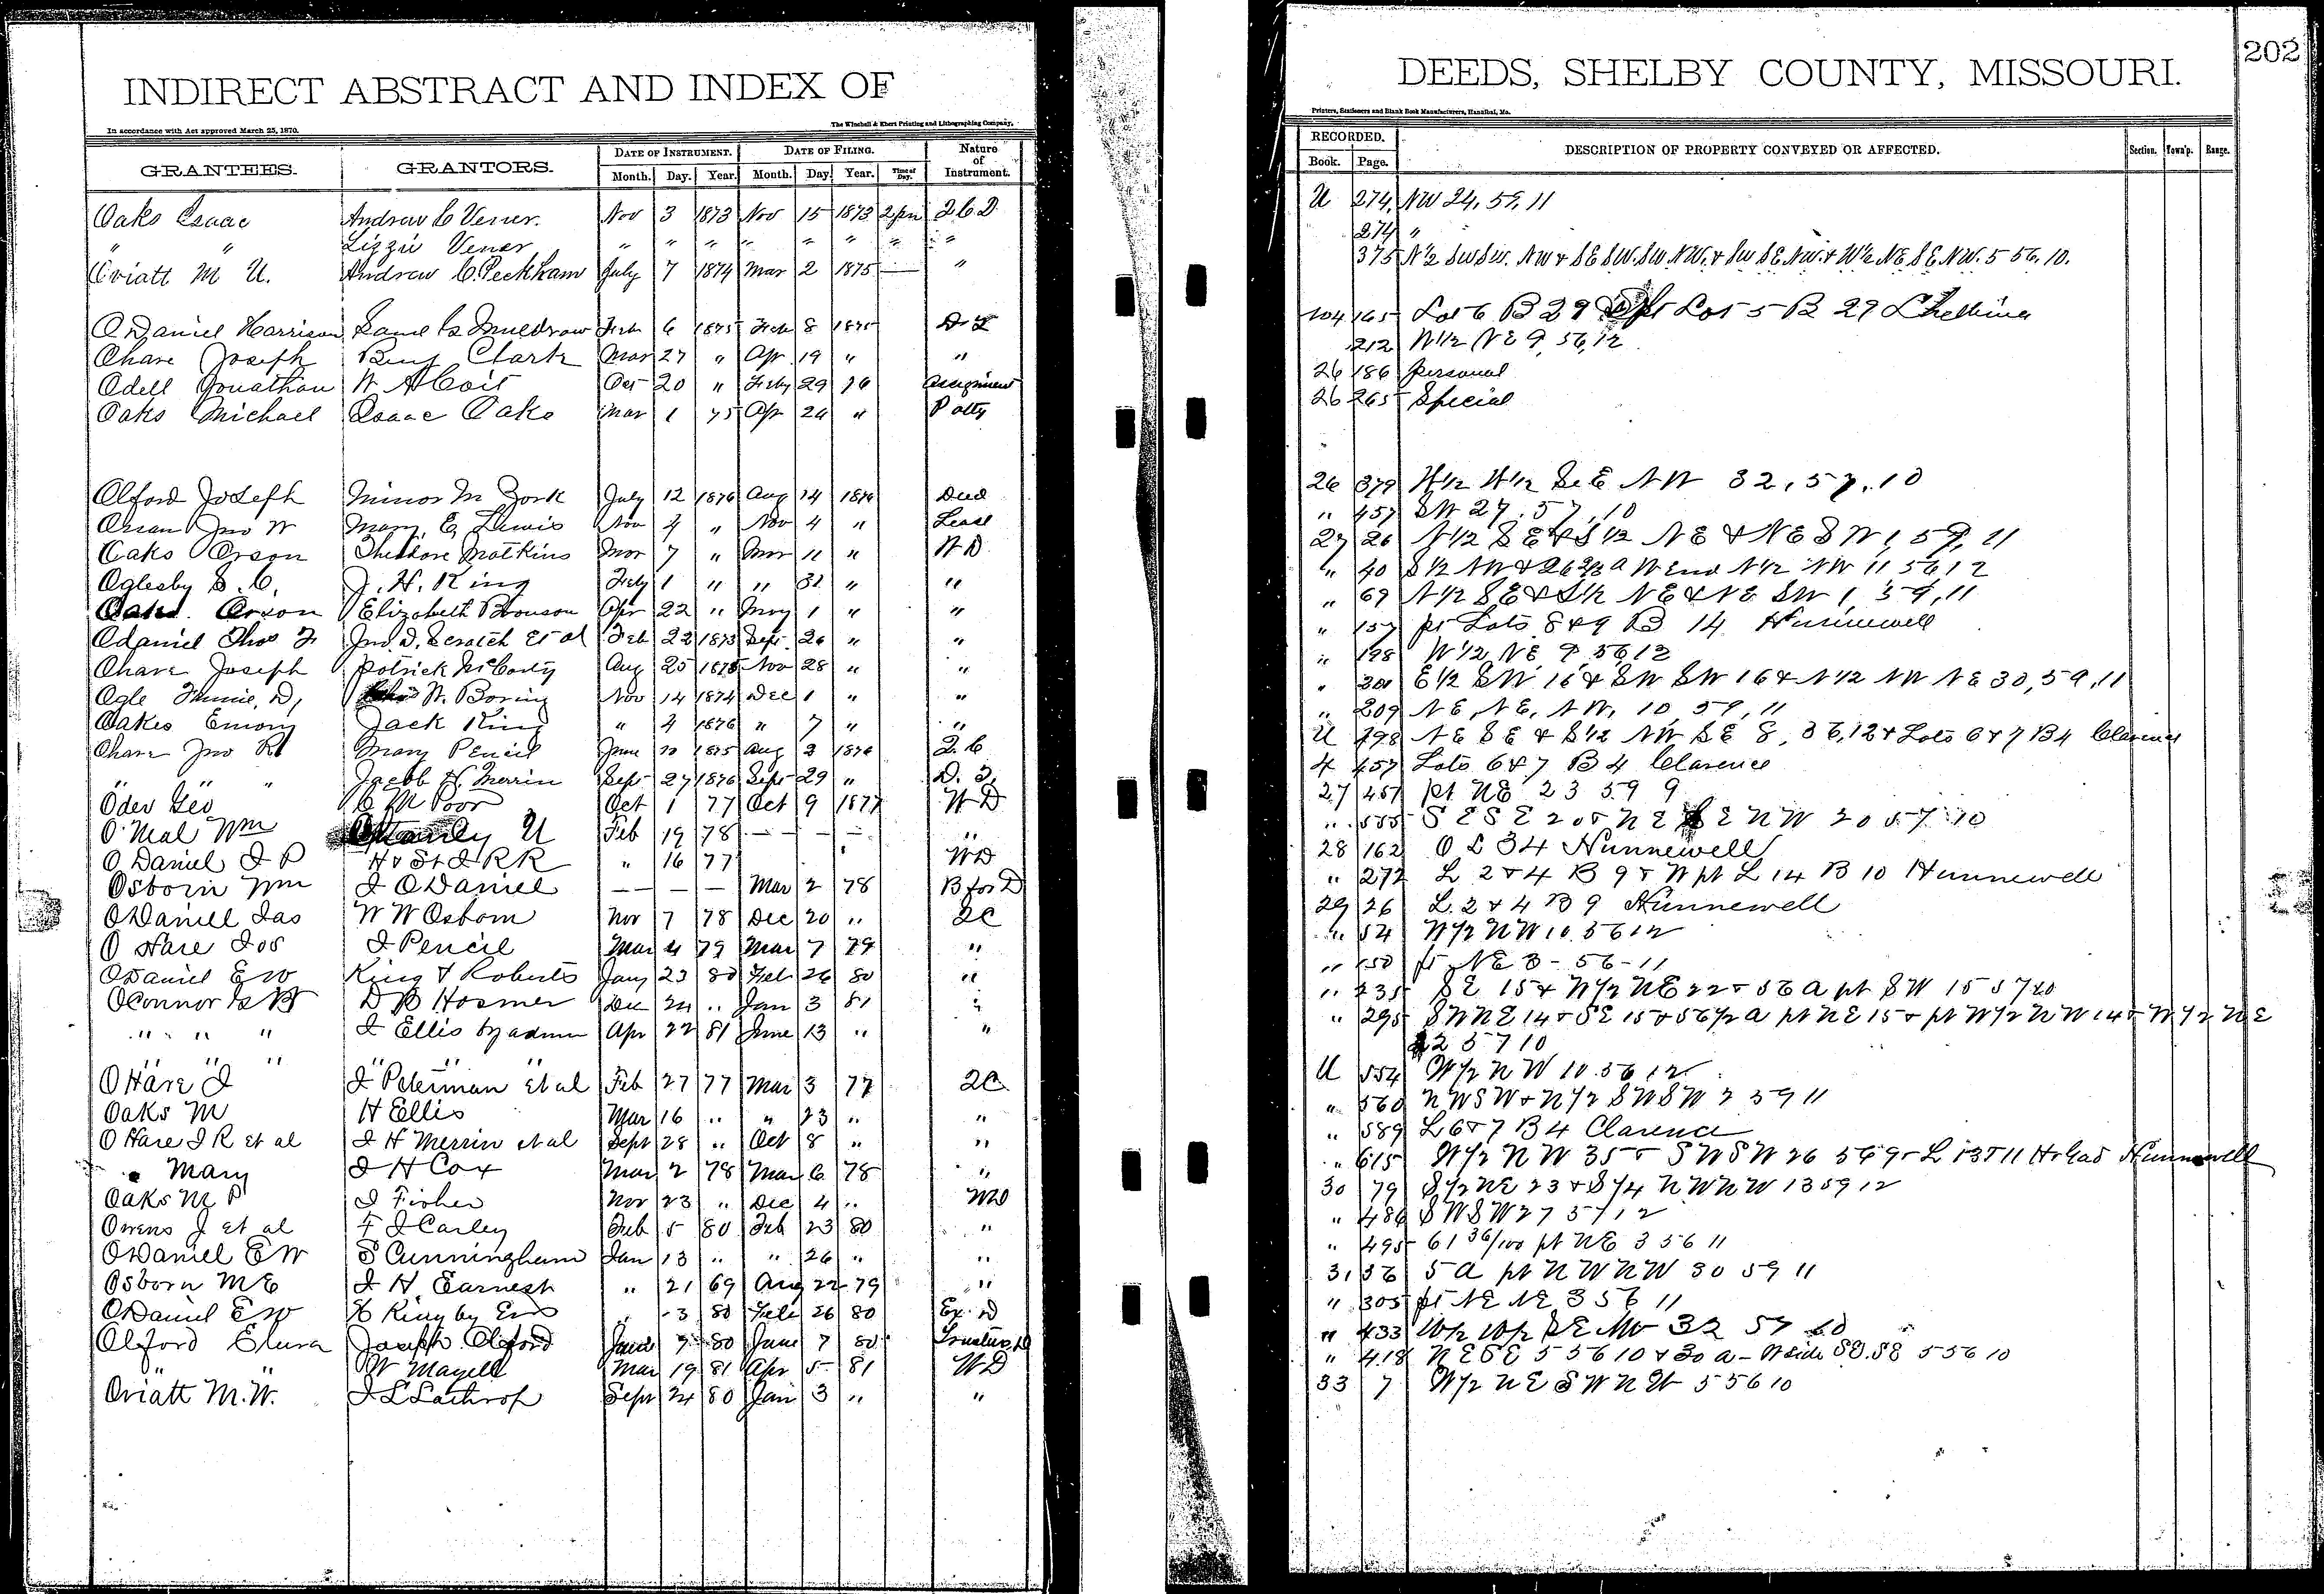 INDIRECT ABSTRACT AND INDEX OF
In accordance with Act approved March 25, 1870.
The Winchell & Ebert Printing and Lithographing Company,
GRANTEES. GRANTORS. DATE OF INSTRUMENT. DATE OF FILING. Nature of Instrument.
Month. Day. Year. Month. Day. Year. Time of Day.
Oaks Isaac Andrew C Vener. Nov 3 1873 Nov 15 1873 2 pm 2 C D
" " Lizzie Vener " " " " " " " "
Oviatt M U. Andrew C. Peckham July 7 1874 Mar 2 1875 — "
O Daniel Harrison Saml G Muldrow Feb 6 1875 Feb 8 1875 D. T
Ohare Joseph Benj Clark Mar 27 " Apr 19 " "
Odell Jonathan W. A Coit Oct 20 " Feby 29 76 Assignment
Oaks Michael Isaac Oaks Mar 1 75 Apr 24 " P atty
Olford Joseph Minor M York July 12 1876 Aug 14 1876 Deed
Jno W Mary E Lewis Nov 4 " Nov 4 " Lease
Oaks Orson Theodore Matkins Mar 7 " Mar 11 " W D
Oglesby S. C. J. H. King Feby 1 " " 31 " "
Oaks Orson Elizabeth Bronson Apr 22 " May 1 " "
Odaniel Thos F Jno. D. Scratch Et al Feb 22 1873 Sept. 26 " "
Ohare Joseph Patrick McCarty Aug 25 1875 Nov 28 " "
Ogle Fannie, D, W. Boring Nov 14 1874 Dec 1 " "
Oakes Emory Jack King " 4 1876 " 7 " "
Ohare Jno R Mary Pencil June 1875 Aug 3 1876 2. C
" " " Jacob H. Merrin Sept 27 1876 Sept 29 " D. T.
Oder Geo C M Poor Oct 1 77 Oct 9 1877 W D
O'Neal Wm U Feb 19 78 — — — — "
O Daniel J P H & St J R R " 16 77 W D
Osborn Wm J O Daniel — — — Mar 2 78 B for D
O Daniell Jas W W Osborn Nov 7 78 Dec 20 " 2C
O Hare Jos J Pencil Mar 4 79 Mar 7 79 "
O Daniel E W King & Roberts Jany 23 80 Feb 26 80 "
O Connor G H D B Hosmer Dec 24 " Jan 3 81 "
" " " J Ellis by admr Apr 22 81 June 13 " "
" " " " " "
O Hare J J Peterman et al Feb 27 77 Mar 3 77 2C
Oaks M H Ellis Mar 16 " " 23 " "
O Hare J R et al J H Merrin et al Sept 28 " Oct 8 " "
" Mary J H Cox Mar 2 78 Mar 6 78 "
Oaks M P J Fisher Nov 23 " Dec 4 " WD
Owens J et al F J Carley Feb 5 80 Feb 23 80 "
O Daniel E W S Cunningham Jan 13 " " 26 " "
Osborn M E J H. Earnest " 21 69 Aug 22 79 "
O Daniel E W H King by Exr " 3 80 Feb 26 80 Ex. D
Olford Elura Joseph Olford June 7 80 June 7 80 Trustees D
" " W Magell Mar 19 81 Apr 5 81 W D
Oviatt M. W. J L Lathrop Sept 24 80 Jan 3 " "
DEEDS, SHELBY COUNTY, MISSOURI.
202
Printers, Stationers and Blank Book Manufacturers, Hannibal, Mo.
RECORDED. DESCRIPTION OF PROPERTY CONVEYED OR AFFECTED. Section. Town'p. Range.
Book. Page.
U 274, NW 24, 59, 11
274 "
375 N½ SW SW. NW & SE SW. SW NW. & SW SE NW. & W½ NE SE NW. 5 56, 10.
104 165 Lot 6 B 29 pt Lot 5 B 29 Shelbina
212 W½ NE 9, 56, 12
26 186 Personal
26 265 Special
26 379 W½ W½ SE NW 32, 57, 10
" 457 SW 27. 57, 10
27 26 N½ SE & S½ NE & NE SW 1, 59, 11
" 40 S½ NW & 26⅔ a W End N½ NW 11 56 12
" 69 N½ SE & S½ NE & NE SW 1, 59, 11
" 157 pt Lots 8 & 9 B 14 Hunnewell
" 198 W½ NE 9 56 12
" 201 E½ SW 16 & SW SW 16 & N½ NW NE 30, 59, 11
" 209 NE, NE, NW, 10 59, 11
U 498 NE SE & S½ NW SE 8, 56, 12 & Lots 6 & 7 B4 Clarence
4 457 Lots 6 & 7 B 4 Clarence
27 451 pt NE 23 59 9
" 555 S E S E 20 & N E S E N W 20 57 10
28 162 O L 34 Hunnewell
" 272 L 2 & 4 B 9 & W pt L 14 B 10 Hunnewell
29 26 L. 2 & 4 B 9 Hunnewell
" 54 W½ N W 10 56 12
" 150 pt NE 3 - 56 - 11
" 235 SE 15 & W½ NE 22 & 56 a pt SW 15 57 10
" 295 SW NE 14 & SE 15 & 56½ a pt NE 15 & pt W½ NW 14 & W½ NE
22 57 10
U 554 W½ N W 10 56 12
" 560 N W S W & N½ S W S W 2 59 11
" 589 L 6 & 7 B 4 Clarence
" 615 W½ N W 35 & S W S W 26 56 9 & L 13 & 11 Hunnewell
30 79 S½ NE 23 & S¼ N W N W 13 59 12
" 486 S W S W 27 57 12
" 495 61 36/100 pt NE 3 56 11
31 36 5 a pt N W N W 30 59 11
" 305 pt NE NE 3 56 11
" 433 W½ W½ SE NW 32 57 10
" 418 NE SE 5 56 10 & 30 a - W side SE. SE 5 56 10
33 7 W½ NE SW NW 5 56 10